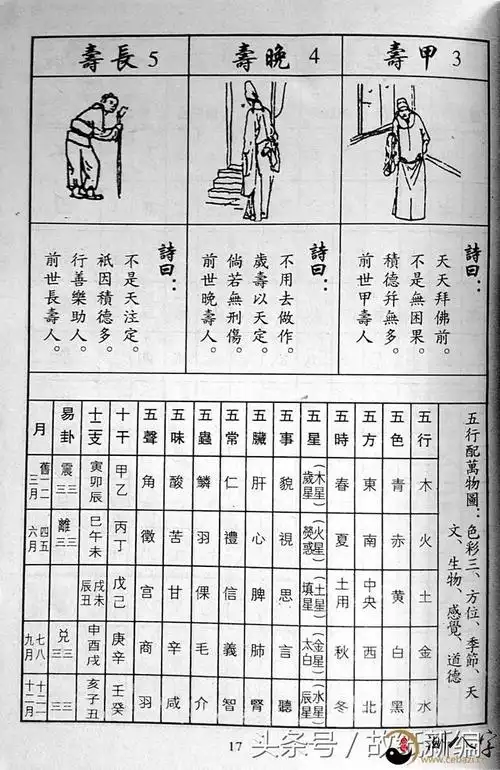 3 甲壽
4 晚壽
5 長壽
詩曰：
天天拜佛前。
不是無因果
積德幷無多。
前世甲壽人。
詩曰：
不用去做作。
歲壽以天定。
倘若無刑傷。
前世晚壽人。
詩曰：
不是天注定。
祇因積德多。
行善樂助人。
前世長壽人。
五行配萬物圖：色彩三、方位、季節、天
文、生物、感覺、道德
五行 木 火 土 金 水
五色 青 赤 黄 白 黑
五方 東 南 中央 西 北
五時 春 夏 土用 秋 冬
五星 （木星）歲星 （火星）熒惑 （土星）填星 （金星）太白 （水星）辰星
五事 貌 視 思 言 聽
五臟 肝 心 脾 肺 腎
五常 仁 禮 信 義 智
五蟲 鱗 羽 倮 毛 介
五味 酸 苦 甘 辛 咸
五聲 角 徵 宫 商 羽
十干 甲乙 丙丁 戊己 庚辛 壬癸
十二支 寅卯辰 巳午未 戌未辰丑 申酉戌 亥子丑
易卦 震三三 離三三 兌三三 三三
月 舊一二三月 四五六月 七八九月 十十一十二月
17
头条号／故新新编
測八字
www.cebazi.com